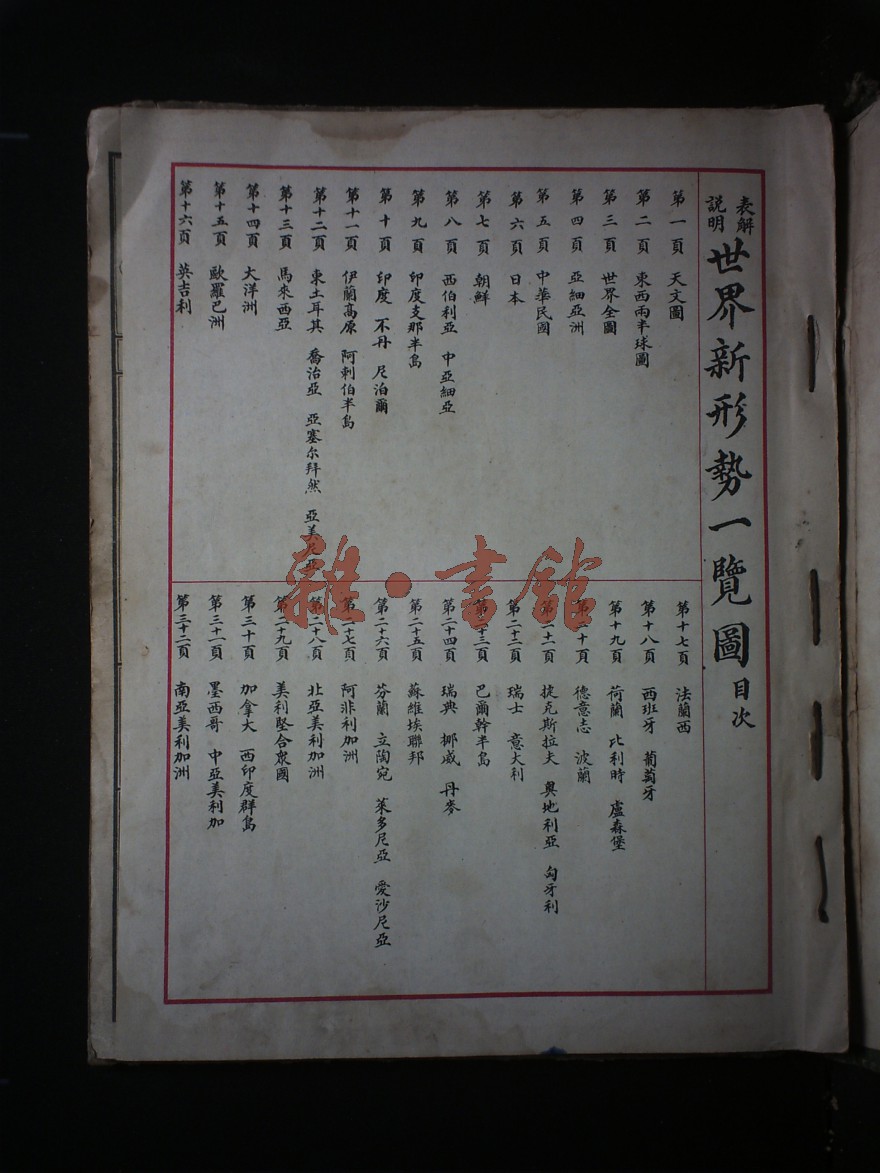 表解
說明
世界新形勢一覽圖目次
第一頁 天文圖
第二頁 東西兩半球圖
第三頁 世界全圖
第四頁 亞細亞洲
第五頁 中華民國
第六頁 日本
第七頁 朝鮮
第八頁 西伯利亞 中亞細亞
第九頁 印度支那半島
第十頁 印度 不丹 尼泊爾
第十一頁 伊蘭高原 阿剌伯半島
第十二頁 東土耳其 喬治亞 亞塞尔拜然 亞美尼亞
第十三頁 馬來西亞
第十四頁 大洋洲
第十五頁 歐羅巴洲
第十六頁 英吉利
第十七頁 法蘭西
第十八頁 西班牙 葡萄牙
第十九頁 荷蘭 比利時 盧森堡
第二十頁 德意志 波蘭
第二十一頁 捷克斯拉夫 奧地利亞 匈牙利
第二十二頁 瑞士 意大利
第二十三頁 巴爾幹半島
第二十四頁 瑞典 挪威 丹麥
第二十五頁 蘇維埃聯邦
第二十六頁 芬蘭 立陶宛 萊多尼亞 愛沙尼亞
第二十七頁 阿非利加洲
第二十八頁 北亞美利加洲
第二十九頁 美利堅合眾國
第三十頁 加拿大 西印度群島
第三十一頁 墨西哥 中亞美利加
第三十二頁 南亞美利加洲
雜·書館